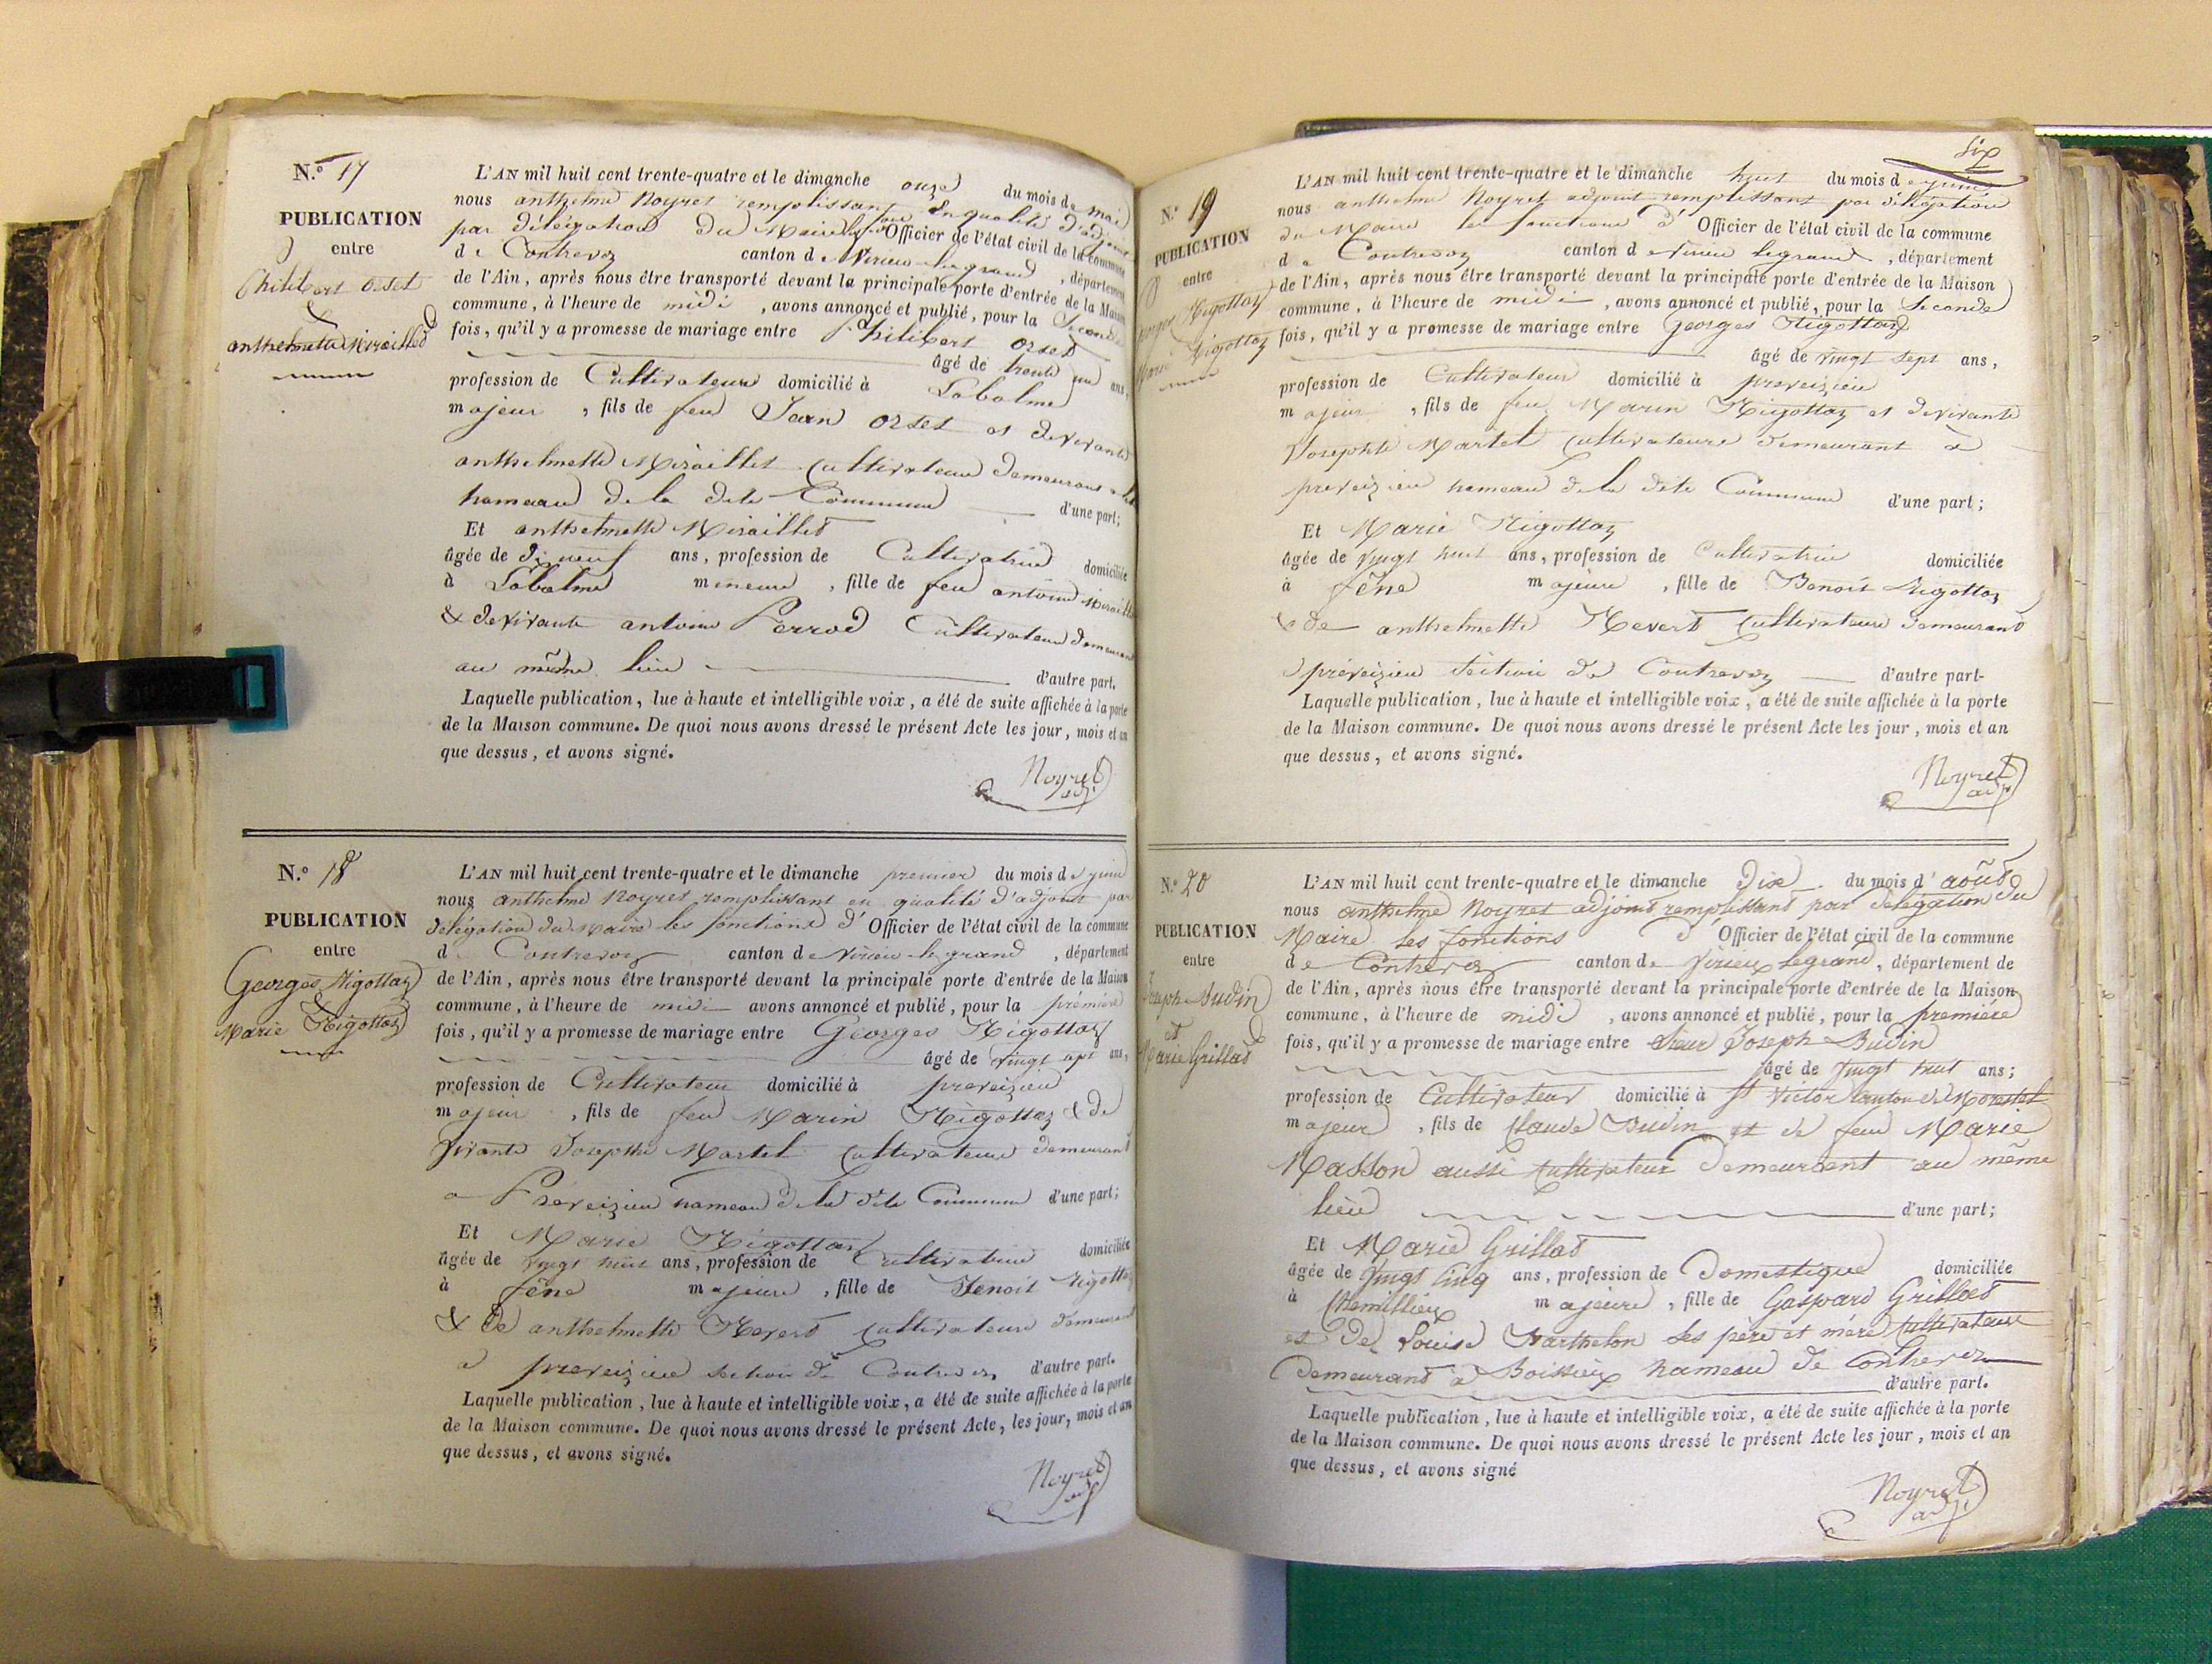 N.º 17
PUBLICATION
entre
Philibert Orset
&
anthelmette Miraillet
L'AN mil huit cent trente-quatre et le dimanche onze du mois de mai
nous anthelme Noyret remplissant en qualité d'adjoint
par Délégation du Maire les Officier de l'état civil de la commune
de Contrevoz canton de Virieu-le-grand, département
de l'Ain, après nous être transporté devant la principale porte d'entrée de la Maison
commune, à l'heure de midi, avons annoncé et publié, pour la Seconde
fois, qu'il y a promesse de mariage entre Philibert Orset
âgé de trente un ans,
profession de Cultivateur domicilié à Labalme
majeur, fils de feu Jean Orset et de vivante
anthelmette Miraillet Cultivateur demeurant
hameau de la dite Commune d'une part;
Et anthelmette Miraillet
âgée de dixneuf ans, profession de Cultivatrice domiciliée
à Labalme mineure, fille de feu antoine Miraillet
& de vivante antoine Perrod Cultivateur demeurant
au même lieu d'autre part.
Laquelle publication, lue à haute et intelligible voix, a été de suite affichée à la porte
de la Maison commune. De quoi nous avons dressé le présent Acte les jour, mois et an
que dessus, et avons signé.
Noyret
adj
N.º 18
PUBLICATION
entre
Georges Rigottaz
&
Marie Rigottaz
L'AN mil huit cent trente-quatre et le dimanche premier du mois de juin
nous anthelme Noyret remplissant en qualité d'adjoint par
délégation du Maire les fonctions d'Officier de l'état civil de la commune
de Contrevoz canton de Virieu-le-grand, département
de l'Ain, après nous être transporté devant la principale porte d'entrée de la Maison
commune, à l'heure de midi avons annoncé et publié, pour la première
fois, qu'il y a promesse de mariage entre Georges Rigottaz
âgé de vingt sept ans,
profession de Cultivateur domicilié à preveizieu
majeur, fils de feu Marin Rigottaz & de
vivante Josephte Martel Cultivateur demeurant
a Preveizieu hameau de la dite Commune d'une part;
Et Marie Rigottaz
âgée de vingt huit ans, profession de Cultivatrice domiciliée
à fêne majeure, fille de Benoit Rigottaz
& de anthelmette Revert Cultivateurs demeurant
a preveizieu section de Contrevoz d'autre part.
Laquelle publication, lue à haute et intelligible voix, a été de suite affichée à la porte
de la Maison commune. De quoi nous avons dressé le présent Acte, les jour, mois et an
que dessus, et avons signé.
Noyret
adj
six
N.º 19
PUBLICATION
entre
Georges Rigottaz
Marie Rigottaz
L'AN mil huit cent trente-quatre et le dimanche huit du mois de juin
nous anthelme Noyret adjoint remplissant par délégation
du Maire les fonctions d'Officier de l'état civil de la commune
de Contrevoz canton de Virieu legrand, département
de l'Ain, après nous être transporté devant la principale porte d'entrée de la Maison
commune, à l'heure de midi, avons annoncé et publié, pour la Seconde
fois, qu'il y a promesse de mariage entre Georges Rigottaz
âgé de vingt sept ans,
profession de Cultivateur domicilié à preveizieu
majeur, fils de feu Marin Rigottaz et de vivante
Josephte Martel Cultivateurs demeurant à
preveizieu hameau de la dite Commune d'une part;
Et Marie Rigottaz
âgée de vingt huit ans, profession de Cultivatrice domiciliée
à fêne majeure, fille de Benoit Rigottaz
& de anthelmette Revert Cultivateurs demeurant
a preveizieu section de Contrevoz d'autre part.
Laquelle publication, lue à haute et intelligible voix, a été de suite affichée à la porte
de la Maison commune. De quoi nous avons dressé le présent Acte les jour, mois et an
que dessus, et avons signé.
Noyret
adj
N.º 20
PUBLICATION
entre
Joseph Budin
et
Marie Grillat
L'AN mil huit cent trente-quatre et le dimanche dix du mois d'août
nous anthelme Noyret adjoint remplissant par délégation du
Maire les fonctions d'Officier de l'état civil de la commune
de Contrevoz canton de Virieu legrand, département de
de l'Ain, après nous être transporté devant la principale porte d'entrée de la Maison
commune, à l'heure de midi, avons annoncé et publié, pour la première
fois, qu'il y a promesse de mariage entre sieur Joseph Budin
âgé de vingt huit ans;
profession de Cultivateur domicilié à St Victor Canton de Morestel
majeur, fils de Claude Budin et de feu Marie
Masson aussi Cultivateur demeurant au même
lieu d'une part;
Et Marie Grillat
âgée de vingt cinq ans, profession de Domestique domiciliée
à Chemillieu majeure, fille de Gaspard Grillat
et de Louise Barthelon ses père et mère Cultivateurs
Demeurant à Boissieu hameau de Contrevoz
d'autre part.
Laquelle publication, lue à haute et intelligible voix, a été de suite affichée à la porte
de la Maison commune. De quoi nous avons dressé le présent Acte les jour, mois et an
que dessus, et avons signé
Noyret
adj